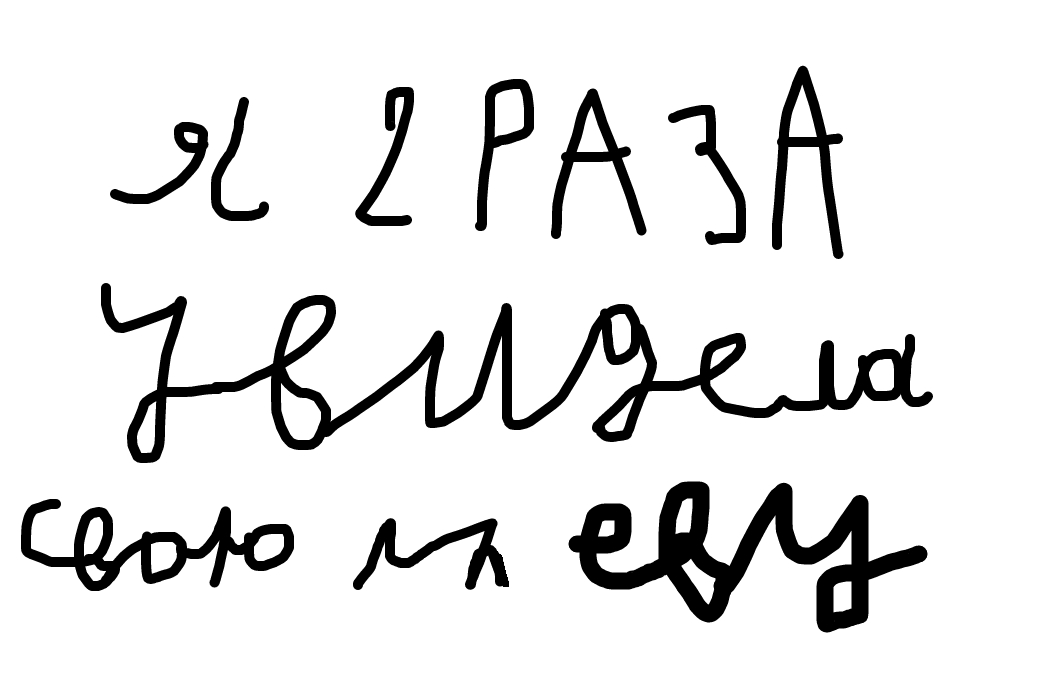 я 2 РАЗА
увидела
свою еву